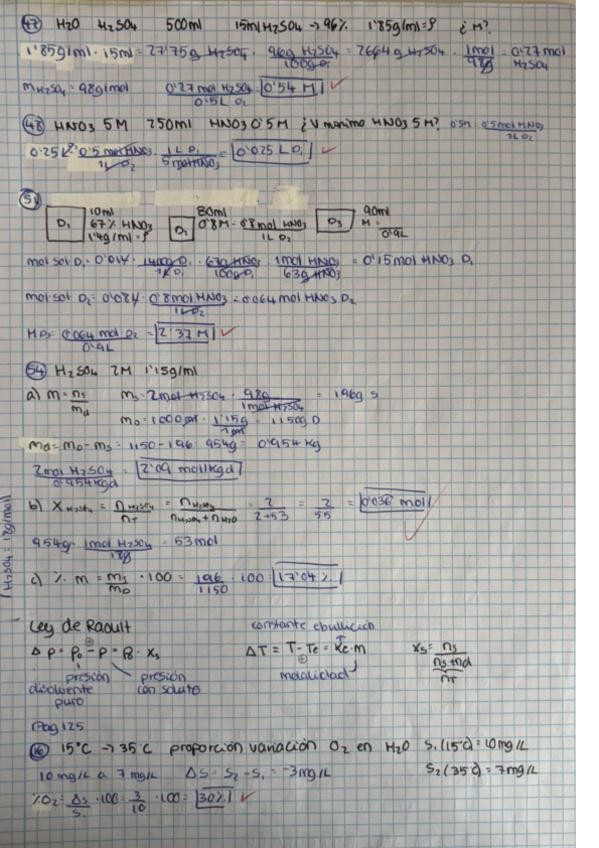 47 H2O H2SO4 500ml 15ml H2SO4 → 96% 1'85g/ml = ρ ¿M?
1'85g/ml · 15ml = 27'75g H2SO4 · 96g H2SO4/100g D = 26'64g H2SO4 · 1mol/98g = 0'27mol H2SO4
mH2SO4 = 98g/mol 0'27 mol H2SO4/0'5L D = 0'54 M ✓
48 HNO3 5M 250ml HNO3 0'5M ¿V mínimo HNO3 5M? 0'5M = 0'5mol HNO3/1L D2
0'25L D2 · 0'5 mol HNO3/1L D2 · 1L D1/5 mol HNO3 = 0'025L D1 ✓
D1 10ml 67% HNO3 1'4g/ml = ρ D2 80ml 0'8M = 0'8mol HNO3/1L D2 D3 90ml M = 0'9L
mol sol D1 = 0'01L · 1400g D1/1L D1 · 67g HNO3/100g D1 · 1mol HNO3/63g HNO3 = 0'15mol HNO3 D1
mol sol D2 = 0'08L · 0'8mol HNO3/1L D2 = 0'064 mol HNO3 D2
MD3 = 0'064 mol D2/0'9L = 2'37 M ✓
54 H2SO4 2M 1'15g/ml
a) m = ns/md ms = 2mol H2SO4 · 98g/1mol H2SO4 = 196g s
mD = 1000ml · 1'15g/1ml = 1150g D
md = mD - ms = 1150 - 196 = 954g = 0'954 kg
2mol H2SO4/0'954kgd = 2'09 mol/kgd
b) XH2SO4 = nH2SO4/nT = nH2SO4/nH2SO4 + nH2O = 2/2+53 = 2/55 = 0'036 mol ✓
954g · 1mol H2SO4/18g = 53mol
(H2SO4 = 18g/mol)
c) % m = ms/mD · 100 = 196/1150 · 100 = 17'04%
Ley de Raoult constante ebullición
ΔP = P0 - P = P0 · Xs ΔT = T - Te = Ke · m Xs = ns/ns+nd
nT
presión presión molalidad
disolvente con soluto
puro
Pag 125
16 15°C → 35°C proporción variación O2 en H2O S1 (15°C) = 10mg/L
10 mg/L a 7 mg/L ΔS = S2 - S1 = -3mg/L S2 (35°C) = 7mg/L
%O2 = Δs/s · 100 = 3/10 · 100 = 30% ✓